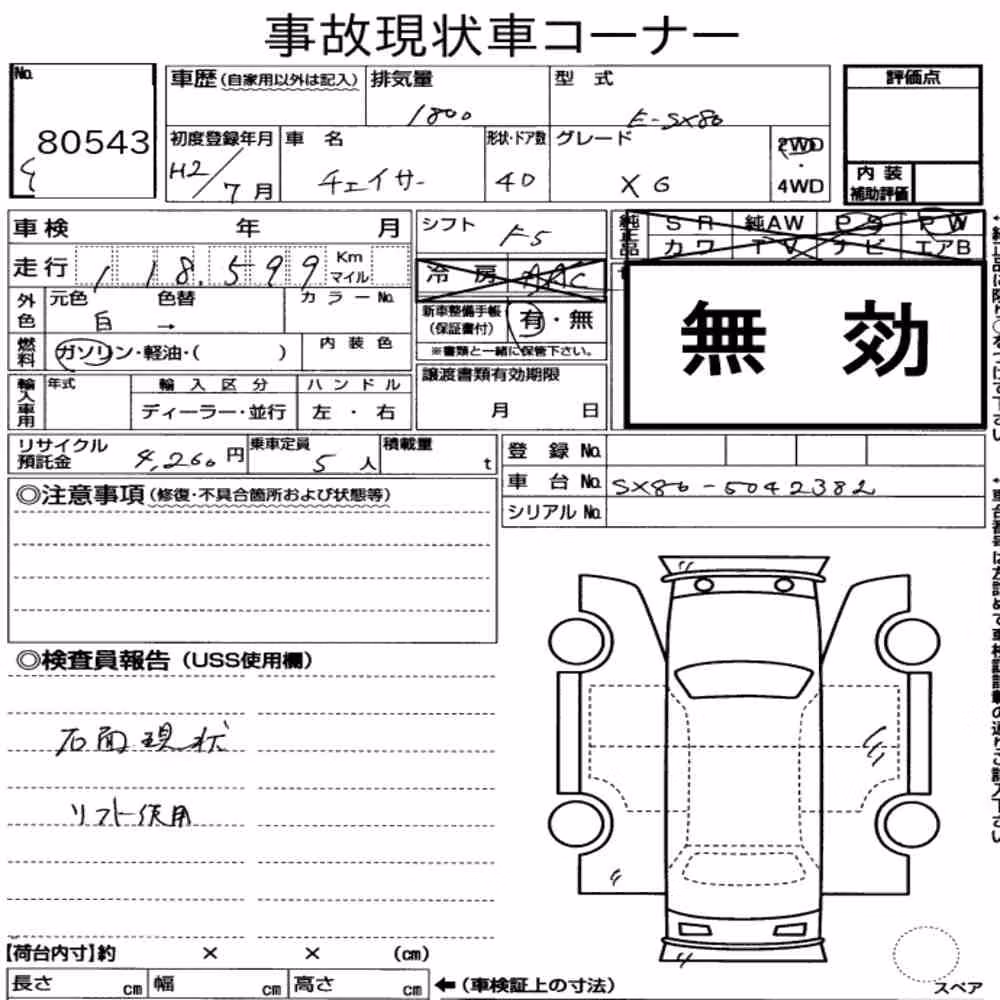 事故現状車コーナー
No.
80543
車歴(自家用以外は記入)
排気量
1800
型 式
E-SX80
評価点
初度登録年月
H2/7月
車 名
チェイサー
形状・ドア数
4D
グレード
XG
2WD
・
4WD
内 装
補助評価
車検 年 月
シフト
F5
純正品
SR 純AW PS PW
カワ TV ナビ エアB
走行 118,599 Km マイル
冷 房 AAC
外色
元色 色替
白 →
カラーNo.
新車整備手帳
(保証書付)
有・無
※書類と一緒に保管下さい。
無 効
燃料
ガソリン・軽油・( )
内 装 色
輸入車用
年式
輸 入 区 分
ディーラー・並行
ハ ン ド ル
左 ・ 右
譲渡書類有効期限
月 日
リサイクル
預託金
4,260円
乗車定員
5人
積載量
t
登 録 No.
車 台 No. SX80-5042382
シリアル No.
◎注意事項(修復・不具合箇所および状態等)
◎検査員報告(USS使用欄)
右面現状
リフト使用
【荷台内寸】約 × × (cm)
長さ cm 幅 cm 高さ cm
←(車検証上の寸法)
スペア